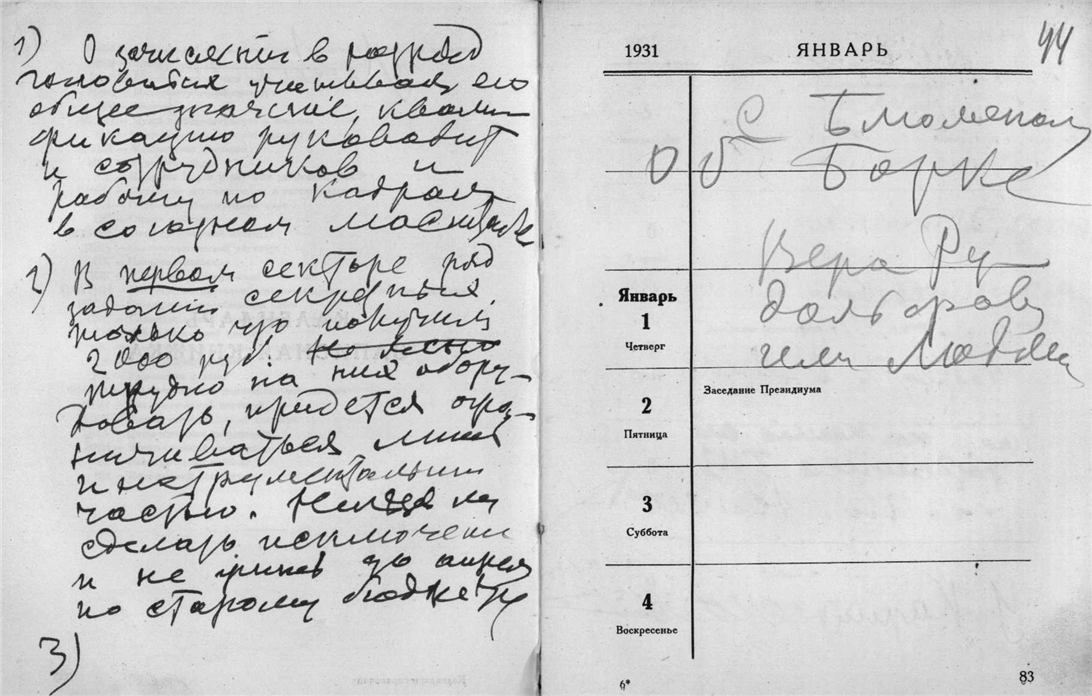 1) О зачислении в разряд
учитывая его
общее значение, квали-
фикацию руководит
и сотрудников и
работу по кадрам
в союзном масштабе
2) В первом секторе ряд
задании секретных.
только что получил
2000 руб. Не ясно
трудно на них обору-
довать, придется огра-
ничиваться лишь
инструментальной
частью. Нельзя ли
сделать исключение
и не до апреля
по старому бюджету
3)
44
1931 ЯНВАРЬ
С
Об Борке
Вера Ру
или
Январь
1
Четверг
2
Пятница
Заседание Президиума
3
Суббота
4
Воскресенье
6*
83